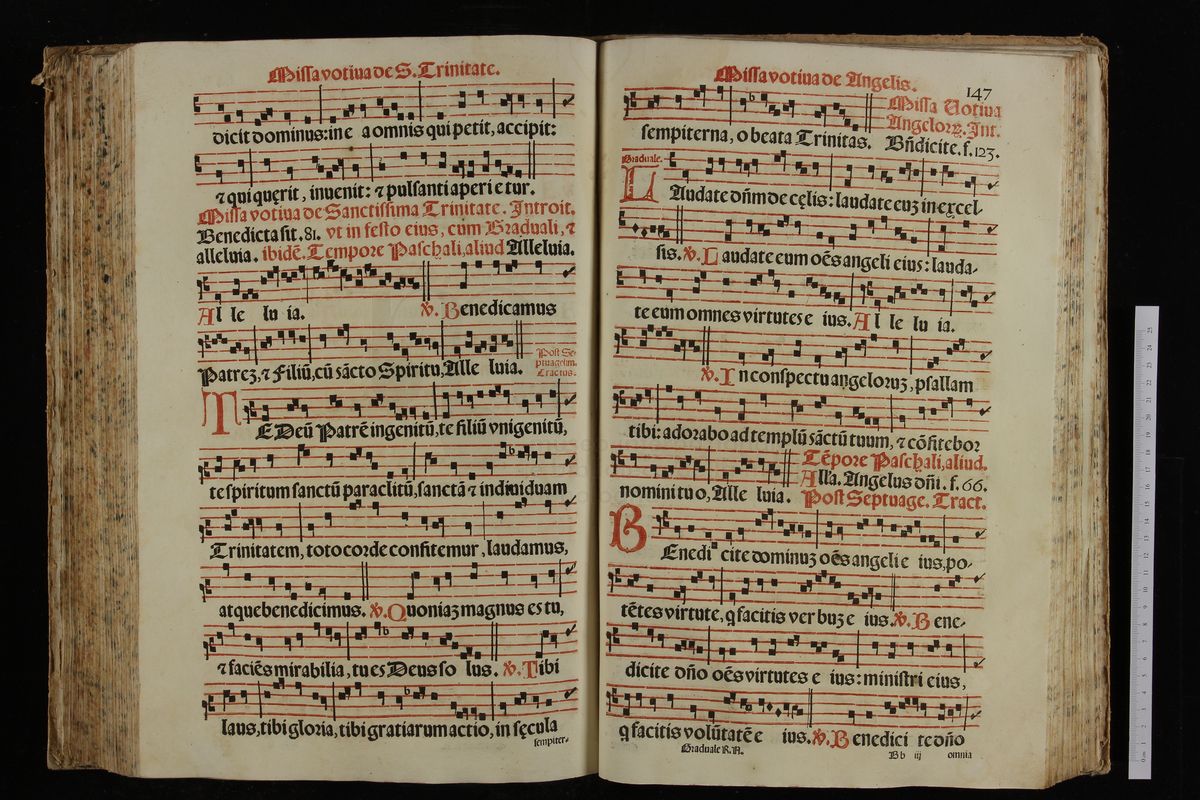 Missa votiua de S. Trinitate.
dicit dominus: in e a omnis qui petit, accipit:
⁊ qui quęrit, inuenit: ⁊ pulsanti aperi e tur.
Missa votiua de Sanctissima Trinitate. Introit.
Benedicta sit. 81. vt in festo eius, cum Graduali, ⁊
alleluia. ibidē. Tempore Paschali, aliud Alleluia.
Al le lu ia. ℣. Benedicamus
Patreʒ, ⁊ Filiū, cū sācto Spiritu, Alle luia.
Post Se-
ptuagesim.
Tractus.
TE Deū Patrē ingenitū, te filiū vnigenitū,
te spiritum sanctū paraclitū, sanctā ⁊ indiuiduam
Trinitatem, toto corde confitemur, laudamus,
atque benedicimus. ℣. Quoniaʒ magnus es tu,
⁊ faciēs mirabilia, tu es Deus so lus. ℣. Tibi
laus, tibi gloria, tibi gratiarum actio, in sęcula
sempiter-
Missa votiua de Angelis.
147
sempiterna, o beata Trinitas.
Missa Votiua
Angeloꝝ. Int.
Bñdicite. f. 123.
Graduale.
LAudate dñm de cęlis: laudate euʒ in excel
sis. ℣. Laudate eum oēs angeli eius: lauda-
te eum omnes virtutes e ius. Al le lu ia.
℣. In conspectu angeloruʒ, psallam
tibi: adorabo ad templū sāctū tuum, ⁊ cōfitebor
nomini tuo, Alle luia.
Tēpore Paschali, aliud.
Alľa. Angelus dñi. f. 66.
Post Septuage. Tract.
BEnedi cite dominuʒ oēs angeli e ius, po-
tētes virtute, q facitis verbuʒ e ius. ℣. Bene-
dicite dño oēs virtutes e ius: ministri eius,
q facitis volūtatē e ius. ℣. Benedici te dño
Graduale R. A.
Bb iij
omnia